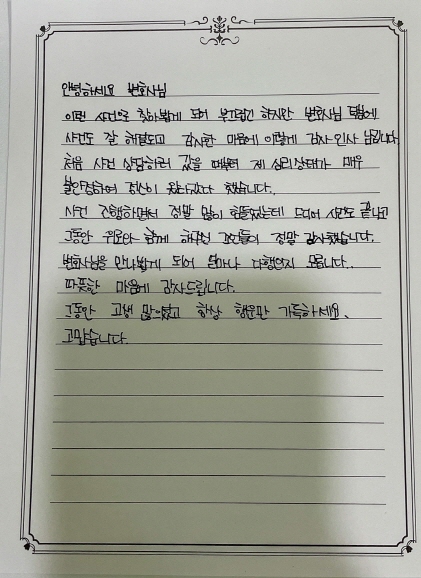 안녕하세요 변호사님
이런 사건으로 찾아뵙게 되어 부끄럽긴 하지만 변호사님 덕분에
사건도 잘 해결되고 감사한 마음에 이렇게 감사 인사 남깁니다.
처음 사건 상담하러 갔을 때부터 제 심리상태가 매우
불안정하여 정신이 왔다갔다 했습니다.
사건 진행하면서 정말 많이 힘들었는데 드디어 사건도 끝나고
그동안 위로와 함께 하셨던 말들이 정말 감사했습니다.
변호사님을 만나뵙게 되어 얼마나 다행인지 모릅니다..
따뜻한 마음에 감사드립니다.
그동안 고생 많으셨고 항상 행운만 가득하세요.
고맙습니다.